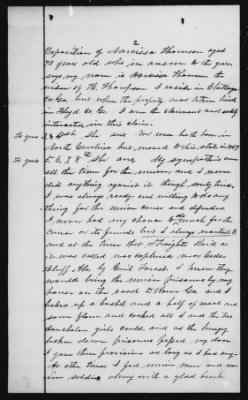 2
Deposition of Narcissa Thomson aged
70 years old who in answer to the ques
says my name is Narcissa Thomson the
widow of H. Thompson I reside in Chattooga
Co Ga but when the property was taken lived
in Floyd Co Ga. I am the claimant and
interested in this claim.
To ques 2 & 3rd she said We were both born in
North Carolina but moved to this state in
To ques 5, 6, 7, 8th She ans My sympathies were
all the time for the union, and I never
did any thing against it though
I was always ready and willing to do any
thing for the union cause and
I never had any chance to do much for the
cause or its friends but I always wanted to
and at the time that Straights Raid as
it was called was captured near Cedar
Bluff Ala by Genl Forest I knew they
would bring the union prisoners by my
house on the road to Rome Ga and I
baked up a bushel and a half of meal and
some flour and cooked all I and the two
girls could and as the hungry
broken down prisoners passed my door
I gave them provisions as long as I had any.
At other times I fed union men and
soldiers along with a glad heart